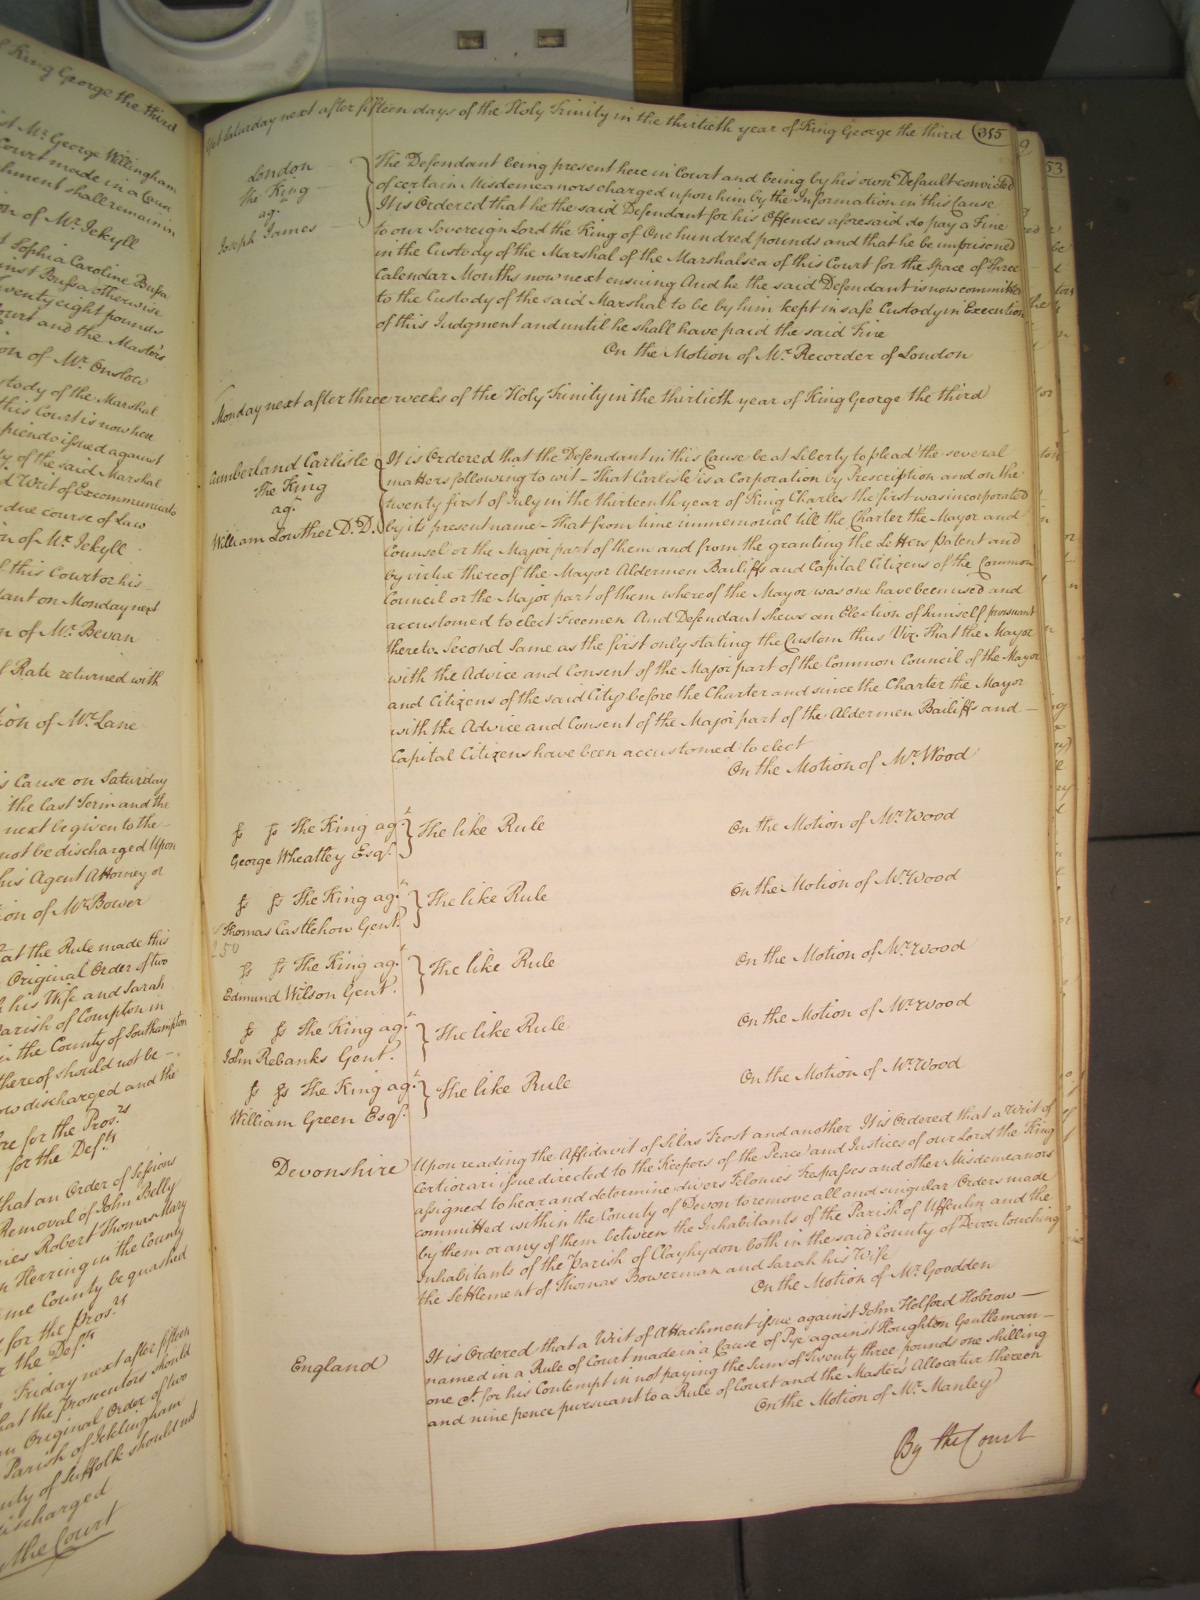 of King George the third
Mr. George Willingham
Court made in a Cause
shall remain in
on of Mr. Jekyll
Sophia Caroline Bussa
Bussa otherwise
twenty eight pounds
Court and the Master's
on of Mr. Onslow
Custody of the Marshal
this Court is now here
issued against
of the said Marshal
Writ of Excommunicato
due course of Law
on of Mr. Jekyll
of this Court or his
on Monday next
on of Mr. Bevan
Rate returned with
tion of Mr. Lane
is Cause on Saturday
the last Term and the
next be given to the
not be discharged Upon
his Agent Attorney or
ion of Mr. Bower
at the Rule made this
Original Order of two
his Wife and Sarah
Parish of Compton in
in the County of Southampton
thereof should not be
now discharged and the
for the Pros.rs
for the Def.ts
that an Order of Sessions
Removal of John Belly
Robert Thomas Mary
Herring in the County
same County be quashed
for the Pros.rs
the Def.ts
Friday next after fifteen
that the prosecutors should
an Original Order of two
Parish of Icklingham
County of Suffolk should not
discharged
the Court
Yet Saturday next after fifteen days of the Holy Trinity in the thirtieth year of King George the third 355
London
The King
ag.t
Joseph James
The Defendant being present here in Court and being by his own Default convicted
of certain Misdemeanors charged upon him by the Information in this Cause
It is Ordered that he the said Defendant for his Offences aforesaid do pay a Fine
to our Sovereign Lord the King of One hundred pounds and that he be imprisoned
in the Custody of the Marshal of the Marshalsea of this Court for the Space of Three
Calendar Months now next ensuing And he the said Defendant is now committed
to the Custody of the said Marshal to be by him kept in safe Custody in Execution
of this Judgment and until he shall have paid the said Fine
On the Motion of Mr. Recorder of London
Monday next after three weeks of the Holy Trinity in the thirtieth year of King George the third
Cumberland Carlisle
The King
ag.t
William Lowther D.D.
It is Ordered that the Defendant in this Cause be at Liberty to plead the several
matters following to wit - That Carlisle is a Corporation by Prescription and on the
twenty first of July in the thirteenth year of King Charles the first was incorporated
by its present name - That from time immemorial till the Charter the Mayor and
Counsel or the Major part of them and from the granting the Letters patent and
by virtue thereof the Mayor Aldermen Bailiffs and Capital Citizens of the Common
Council or the Major part of them whereof the Mayor was one have been used and
accustomed to elect Freemen And Defendant shews an Election of himself pursuant
thereto. Second Same as the first only stating the Custom thus Viz. That the Mayor
with the Advice and Consent of the Major part of the Common Council of the Mayor
and Citizens of the said City before the Charter and since the Charter the Mayor
with the Advice and Consent of the Major part of the Aldermen Bailiffs and -
Capital Citizens have been accustomed to elect
On the Motion of Mr. Wood
The King ag.t
George Wheatley Esq.r
The like Rule
On the Motion of Mr. Wood
The King ag.t
Thomas Castlehow Gent.
The like Rule
On the Motion of Mr. Wood
250
The King ag.t
Edmund Wilson Gent.
The like Rule
On the Motion of Mr. Wood
The King ag.t
John Rebanks Gent.
The like Rule
On the Motion of Mr. Wood
The King ag.t
William Green Esq.r
The like Rule
On the Motion of Mr. Wood
Devonshire
Upon reading the Affidavit of Silas Frost and another It is Ordered that a Writ of
Certiorari issue directed to the Keepers of the Peace and Justices of our Lord the King
assigned to hear and determine divers Felonies Trespasses and other Misdemeanors
committed within the County of Devon to remove all and singular Orders made
by them or any of them between the Inhabitants of the Parish of Uffculm and the
Inhabitants of the Parish of Clayhydon both in the said County of Devon touching
the Settlement of Thomas Bowerman and Sarah his Wife
On the Motion of Mr. Goodden
England
It is Ordered that a Writ of Attachment issue against John Holford Hobrow -
named in a Rule of Court made in a Cause of Pye against Houghton Gentleman -
one &c. for his Contempt in not paying the Sum of Twenty three pounds one shilling
and nine pence pursuant to a Rule of Court and the Master's Allocatur thereon
On the Motion of Mr. Manley
By the Court
53